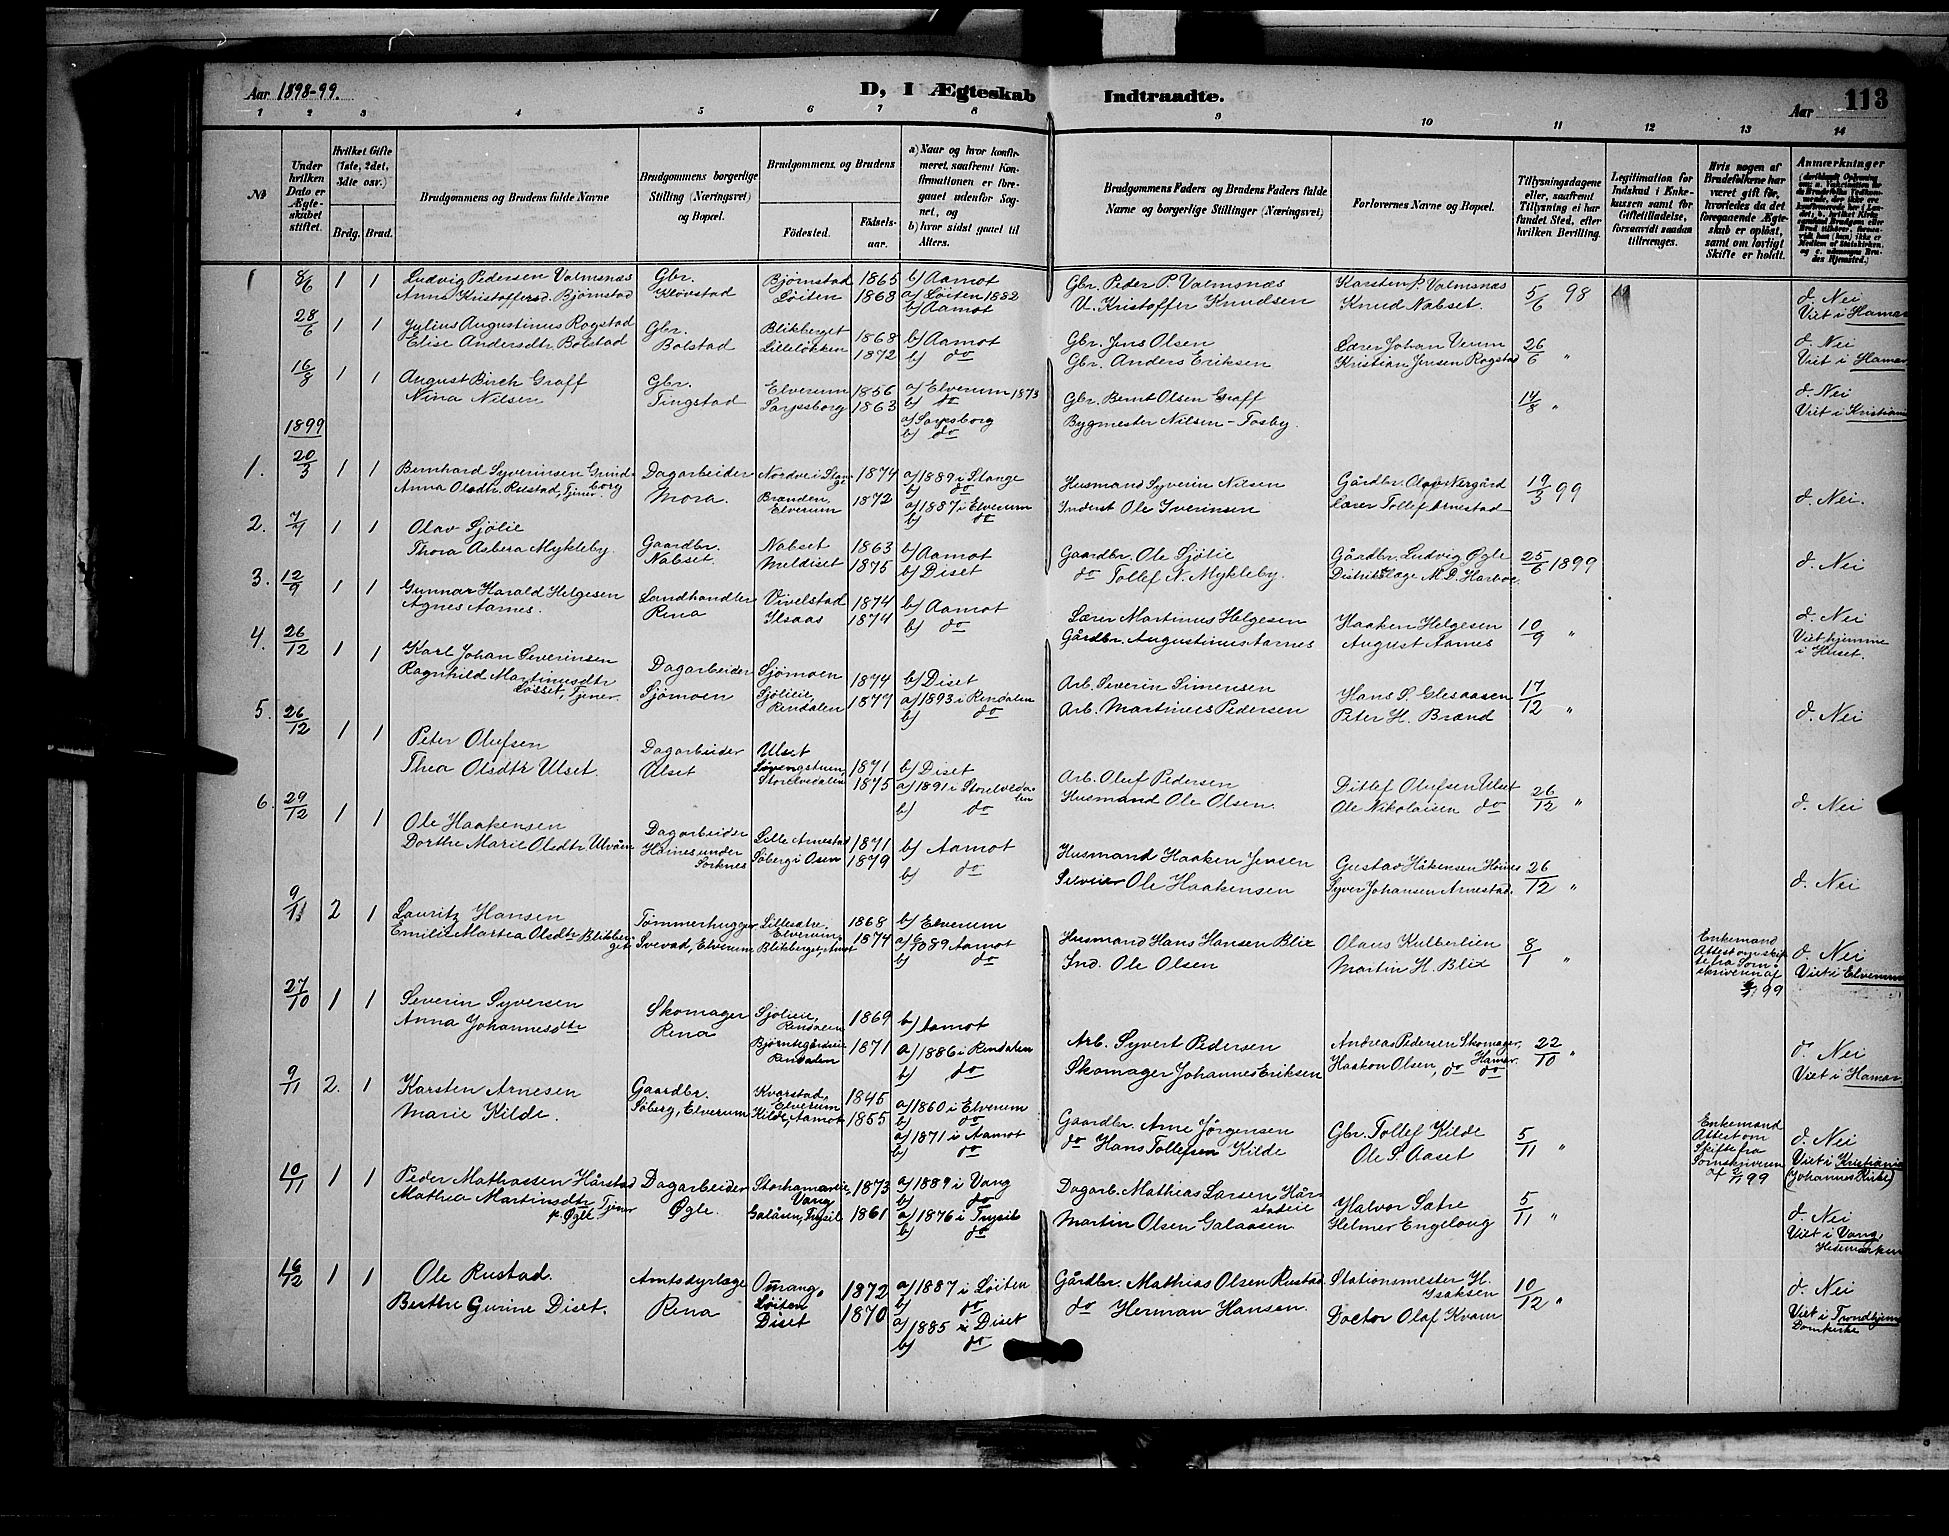 Aar 1898-99.
D, I Ægteskab Indtraadte.
Aar 113
1 2 3 4 5 6 7 8 9 10 11 12 13 14
No
Under hvilken Dato er Ægteskabet stiftet.
Hvilket Gifte (1ste, 2det, 3die osv.)
Brdg. Brud.
Brudgommens og Brudens fulde Navne
Brudgommens borgerlige Stilling (Næringsvei) og Bopæl.
Brudgommens og Brudens
Födested. Födselsaar.
a) Naar og hvor konfirmeret, saafremt Konfirmationen er foregaaet udenfor Sognet, og
b) hvor sidst gaaet til Alters.
Brudgommens Faders og Brudens Faders fulde Navne og borgerlige Stillinger (Næringsvei)
Forlovernes Navne og Bopæl.
Tillysningsdagene eller, saafremt Tillysning ei har fundet Sted, efter hvilken Bevilling.
Legitimation for Indskud i Enkekassen samt for Giftetilladelse, forsaavidt saadan tiltrænges.
Hvis nogen af Brudefolkene har været gift før, hvorledes da det foregaaende Ægteskab er oplöst, samt om lovligt Skifte er holdt.
Anmærkninger
1 8/6 1 1 Ludvig Pedersen Valmsnæs Gbr. Bjørnstad 1865 b) Aamot Gbr. Peder P. Valmsnæs Karsten P. Valmsnæs 5/6 98 d. Nei
Anne Kristoffersd. Bjørnstad Kløvstad Løiten 1868 a) Løiten 1882 U. Kristoffer Knudsen Knud Nabset. Viet i Hamar
b) Aamot
28/6 1 1 Julius Augustinus Rogstad Gbr. Blikberget 1868 b) Aamot Gbr. Jens Olsen Lærer Johan Verum 26/6 " d. Nei
Elise Andersdtr. Bolstad Bolstad Lilleløkken 1872 b) do Gbr. Anders Eriksen Kristian Jensen Rogstad Viet i Hamar
16/8 1 1 August Birch Graff Gbr. Elverum 1856 a) Elverum 1873 Gbr. Bernt Olsen Graff 14/8 " d. Nei
Nina Nilsen Tingstad Sarpsborg 1863 b) do Bygmester Nilsen-Tosby. Viet i Kristiania
a) Sarpsborg
b) do
1899
1. 20/3 1 1 Bernhard Syverinsen Grindborg Dagarbeider Nordvi i Stange 1874 a) 1889 i Stange Husmand Syverin Nilsen Gårdbr. Olav Nergård 19/3 99 d. Nei.
Anna Olsdtr. Rustad, Tjener. Mora. Brænden, Elverum 1872 b) do Inderst Ole Iverinsen Lærer Tollef Arnestad
a) 1887 i Elverum
b) do
2. 7/7 1 1 Olav Sjölie Gaardbr. Nabset 1863 b) Aamot Gaardbr. Ole Sjölie Gårdbr. Ludvig Øgle 25/6 1899 d. Nei
Thora Asbera Mykleby. Nabset. Meldiset 1875 b) Diset do Tollef N. Mykleby. Distriktslæge M. D. Harboe
3. 12/9 1 1 Gunnar Harald Helgesen Landhandler Vivelstad 1874 b) Aamot Lærer Martinus Helgesen Haaken Helgesen 10/9 " d. Nei
Agnes Aarnes. Rena Ilsaas 1874 b) do Gårdbr. Augustinus Aarnes August Aarnes Viet hjemme i Huset.
4. 26/12 1 1 Karl Johan Severinsen Dagarbeider Sjømoen 1874 b) Diset Arb. Severin Simensen Hans S. Glesaasen 17/12 " d. Nei
Ragnhild Martinusdtr Løsset, Tjener. Sjømoen Sjølieie, Rendalen 1877 a) 1893 i Rendalen Arb. Martinus Pedersen Peter H. Brænd
b) do
5. 26/12 1 1 Peter Olufsen Dagarbeider Ulset 1871 b) Diset Arb. Oluf Pedersen Ditlef Olufsen Ulset 26/12 " d. Nei
Thea Olsdtr Ulset. Ulset Storelvedalen 1875 a) 1891 i Storelvedalen Husmand Ole Olsen. Ole Nikolaisen do
b) do
6. 29/12 1 1 Ole Haakensen Dagarbeider Lille Arnestad 1871 b) Aamot Husmand Haaken Jensen Gustav Håkensen Hornes 26/12 " d. Nei
Dorthe Marie Olsdtr Ulvåen Hornes under Sorknes Søberg i Osen 1879 b) do Selveier Ole Haakensen Syver Johansen Arnestad.
9/11 2 1 Lauritz Hansen Tømmerhugger Lillesætre, Elverum 1868 b) Elverum Husmand Hans Hansen Blix Olaus Kulberlien 8/1 " Enkemand d. Nei
Emilie Martea Olsdtr Blikberget Svevad, Elverum Blikberget, Aamot 1874 a) 1889 Aamot Ind. Ole Olsen Martin H. Blix Attest om skifte fra Sorenskriveren af 99 Viet i Elverum
b) do
27/10 1 1 Severin Syversen Skomager Sjolieie, Rendalen 1869 b) Aamot Arb. Syvert Pedersen Andreas Pedersen Skomager, Hamar 22/10 " d. Nei
Anna Johannesdtr Rena Rendalen 1871 a) 1886 i Rendalen Skomager Johannes Eriksen Haakon Olsen, do do Viet i Hamar
b) do
9/11 2. 1 Karsten Arnesen Gaardbr. Kvarstad, Elverum 1845 a) 1860 i Elverum Gaardbr. Arne Jörgensen Gbr. Tollef Kilde 5/11 " Enkemand d. Nei
Marie Kilde. Søberg, Elverum Kilde, Aamot 1855 b) do do Hans Tollefsen Kilde Ole S. Aaset Attest om Skifte fra Sorenskriveren af 99 Viet i Kristiania (Johannes Kirke)
a) 1871 i Aamot
b) do
10/11 1 1 Peder Mathiassen Hårstad Dagarbeider Storhamareie, Vang 1873 a) 1889 i Vang Dagarb. Mathias Larsen Hårstadeie Halvor Sætre 5/11 " d. Nei
Mathea Martinsdtr Tjener p. Øgle Øgle. Galåsen, Trysil 1861 b) do Martin Olsen Galaasen Helmer Engelaug Viet i Vang, Hedemarken
a) 1876 i Trysil
b) do
16/12 1 1 Ole Rustad. Amtsdyrlæge Omang, Løiten 1872 a) 1887 i Løiten Gårdbr. Mathias Olsen Rustad. Stationsmester H. Isaksen 10/12 " d. Nei
Berthe Gurine Diset. Rena Diset 1870 b) do do Herman Hansen. Doctor Olaf Kvam Viet i Trondhjems Domkirke
a) 1885 i Diset
b) do